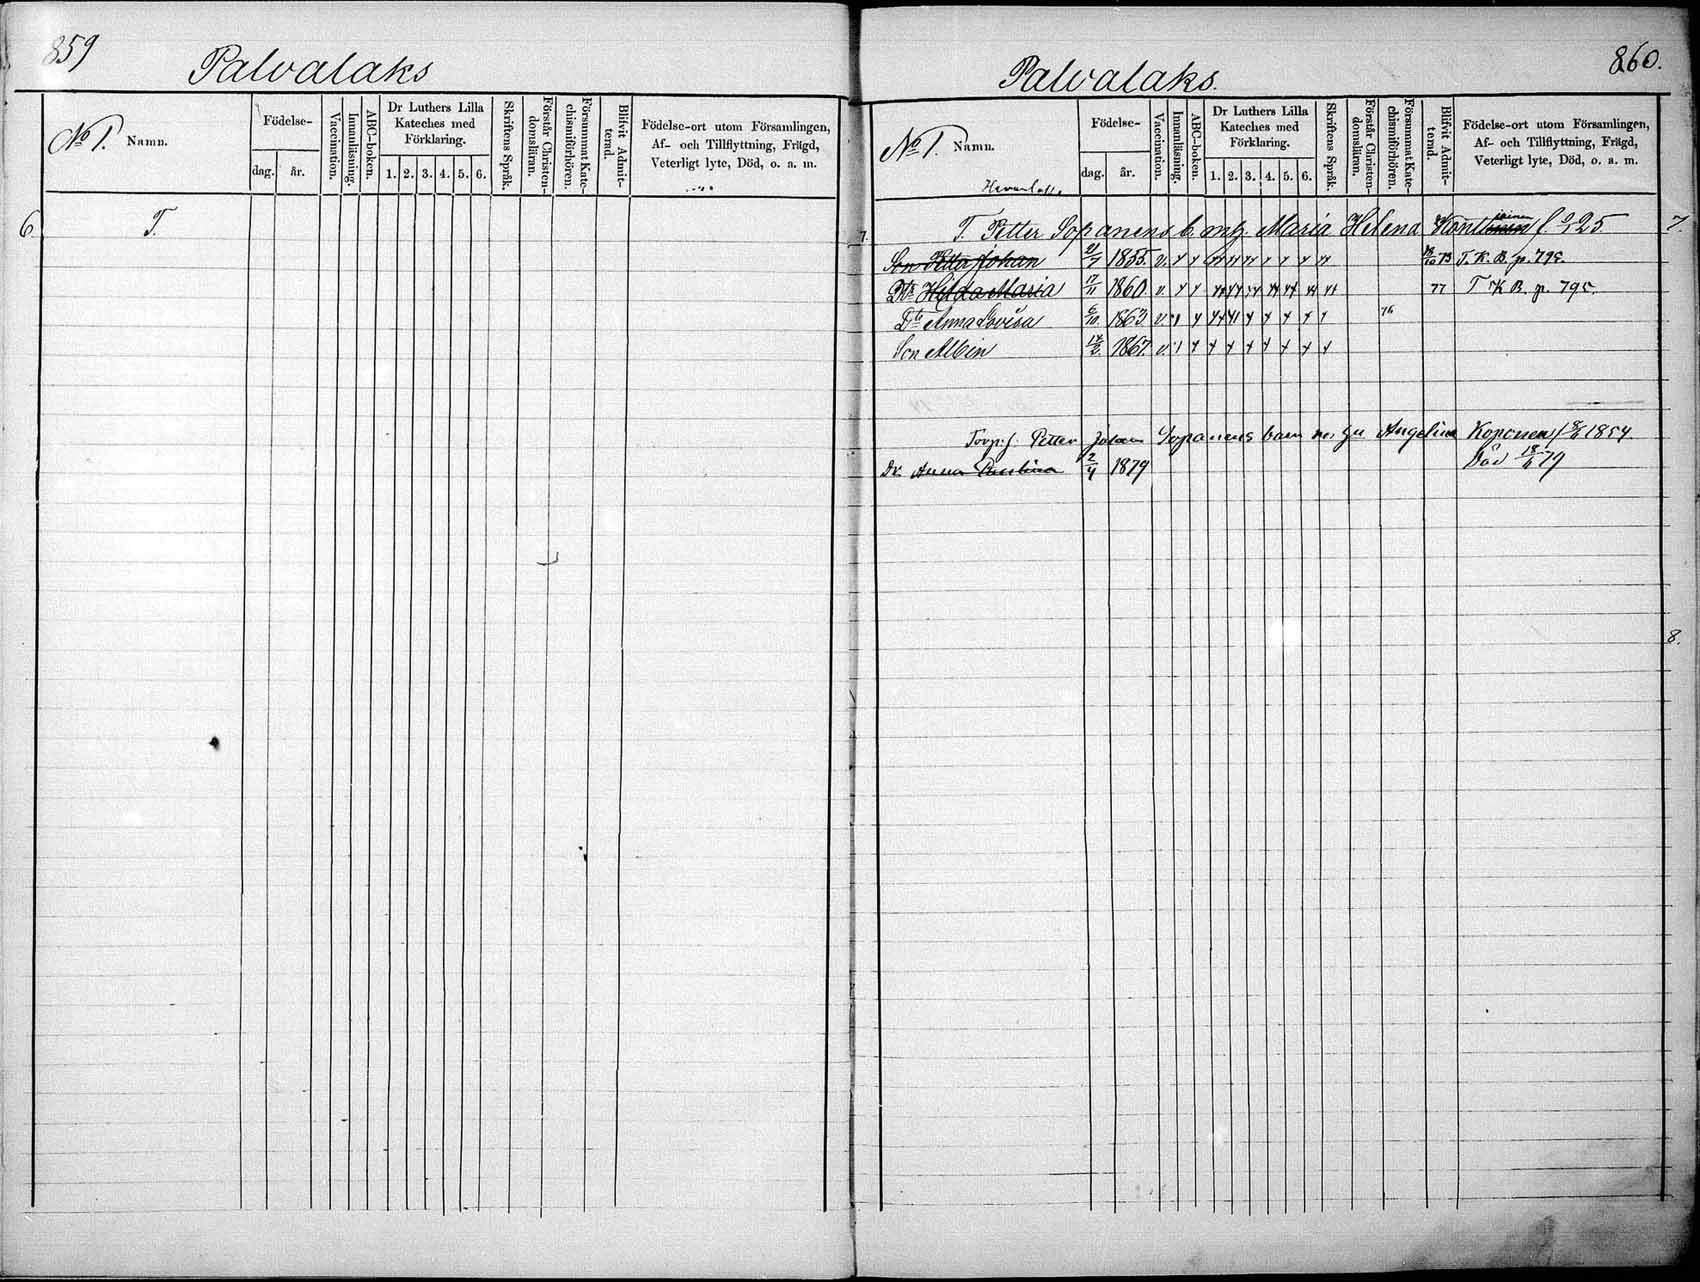 859
Palvalaks
No 1. Namn.
Födelse-
dag. år.
Vaccination.
Innanläsning.
ABC-boken.
Dr Luthers Lilla
Kateches med
Förklaring.
1. 2. 3. 4. 5. 6.
Skriftens Språk.
Förstår Christen-
domsläran.
Försummat Kate-
chismiförhören.
Blifvit Admit-
terad.
Födelse-ort utom Församlingen,
Af- och Tillflyttning, Frägd,
Veterligt lyte, Död, o. a. m.
6. T.
860.
Palvalaks.
No 1. Namn.
Födelse-
dag. år.
Vaccination.
Innanläsning.
ABC-boken.
Dr Luthers Lilla
Kateches med
Förklaring.
1. 2. 3. 4. 5. 6.
Skriftens Språk.
Förstår Christen-
domsläran.
Försummat Kate-
chismiförhören.
Blifvit Admit-
terad.
Födelse-ort utom Församlingen,
Af- och Tillflyttning, Frägd,
Veterligt lyte, Död, o. a. m.
7. T. Petter Sopanens b. m. h. Maria Helena f. 225 7.
Son Petter Johan 21/7 1855. v. 73 T. K. B. p. 795.
Dtr Hilda Maria 17/11 1860 v. 77 T K B. p. 795.
Dta Anna Lovisa 6/10 1863 v. 76
Son Albin 1867. v.
Torp.s. Petter Johan Sopanens barn med hu Angelina Koponen f 8/6 1854.
Dr. Anna Paulina 2/4 1879 Död 18/6 79
8.